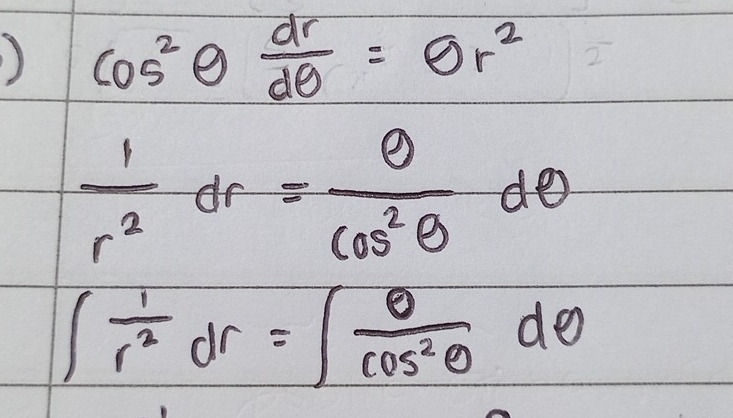 ) cos² θ dr/dθ = θr²
1/r² dr = θ/cos² θ dθ
∫ 1/r² dr = ∫ θ/cos² θ dθ